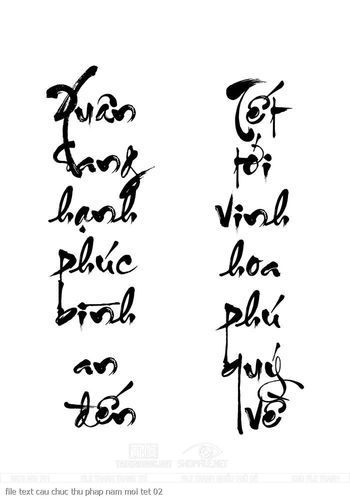 Xuân
sang
hạnh
phúc
bình
an
đến
Tết
tới
vinh
hoa
phú
quý
về
file text cau chuc thu phap nam moi tet 02